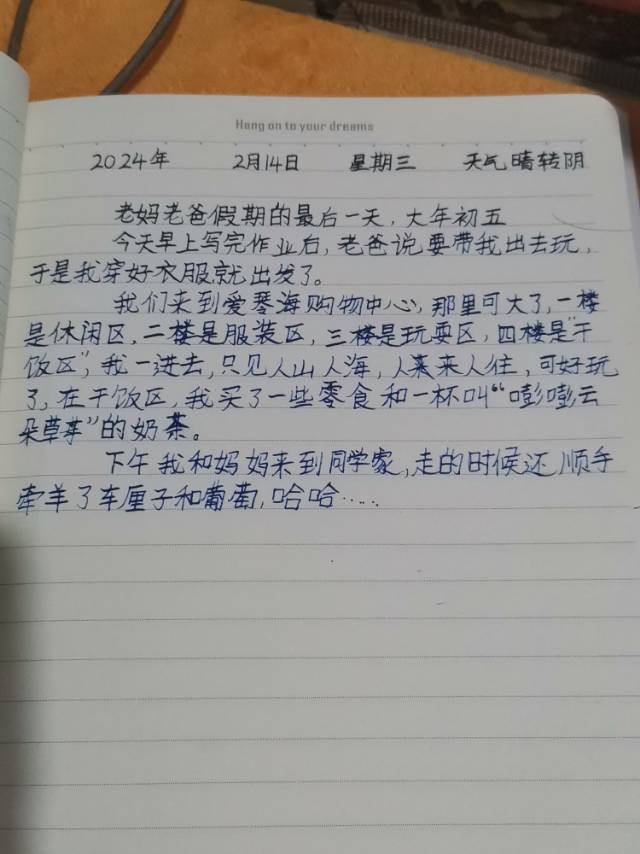 Hang on to your dreams
2024年 2月14日 星期三 天气晴转阴
老妈老爸假期的最后一天，大年初五
今天早上写完作业后，老爸说要带我出去玩，
于是我穿好衣服就出发了。
我们来到爱琴海购物中心，那里可大了，一楼
是休闲区，二楼是服装区，三楼是玩耍区，四楼是“干
饭区”，我一进去，只见人山人海，人来人往，可好玩
了，在干饭区，我买了一些零食和一杯叫“嘭嘭云
朵草莓”的奶茶。
下午我和妈妈来到同学家，走的时候还顺手
牵羊了车厘子和葡萄，哈哈……